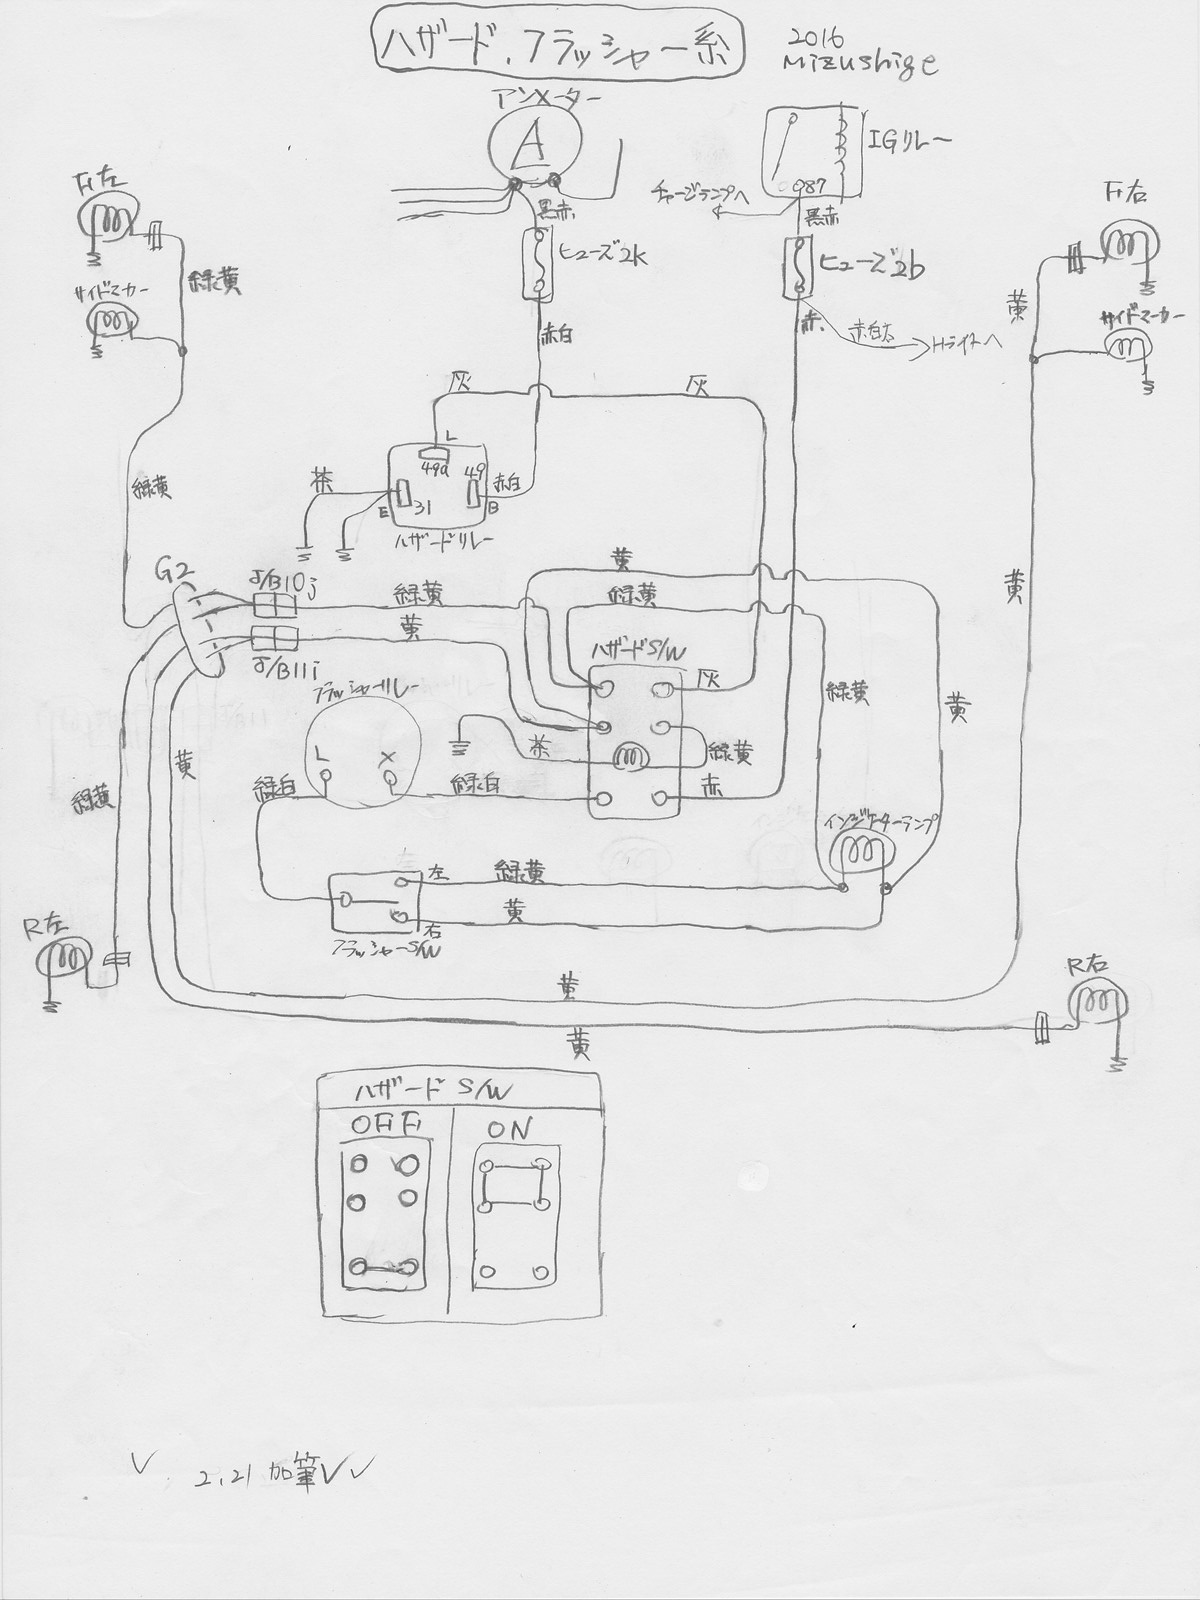 ハザード.フラッシャー系
2016
Mizushige
アンメーター
A
IGリレー
87
チャージランプへ
黒赤
黒赤
Fr左
Fr右
ヒューズ2k
ヒューズ2b
緑黄
サイドマーカー
黄
サイドマーカー
赤白
赤
赤白太
Hライトへ
灰
灰
L
49a
49
茶
赤白
E
31
B
緑黄
ハザードリレー
G2
J/B10j
緑黄
黄
緑黄
黄
黄
J/B11i
ハザードS/W
フラッシャーリレー
灰
緑黄
黄
茶
緑黄
黄
L
X
緑白
緑白
赤
緑黄
インジケーターランプ
左
緑黄
黄
右
フラッシャーS/W
R左
R右
黄
黄
ハザード S/W
OFF
ON
2.21 加筆